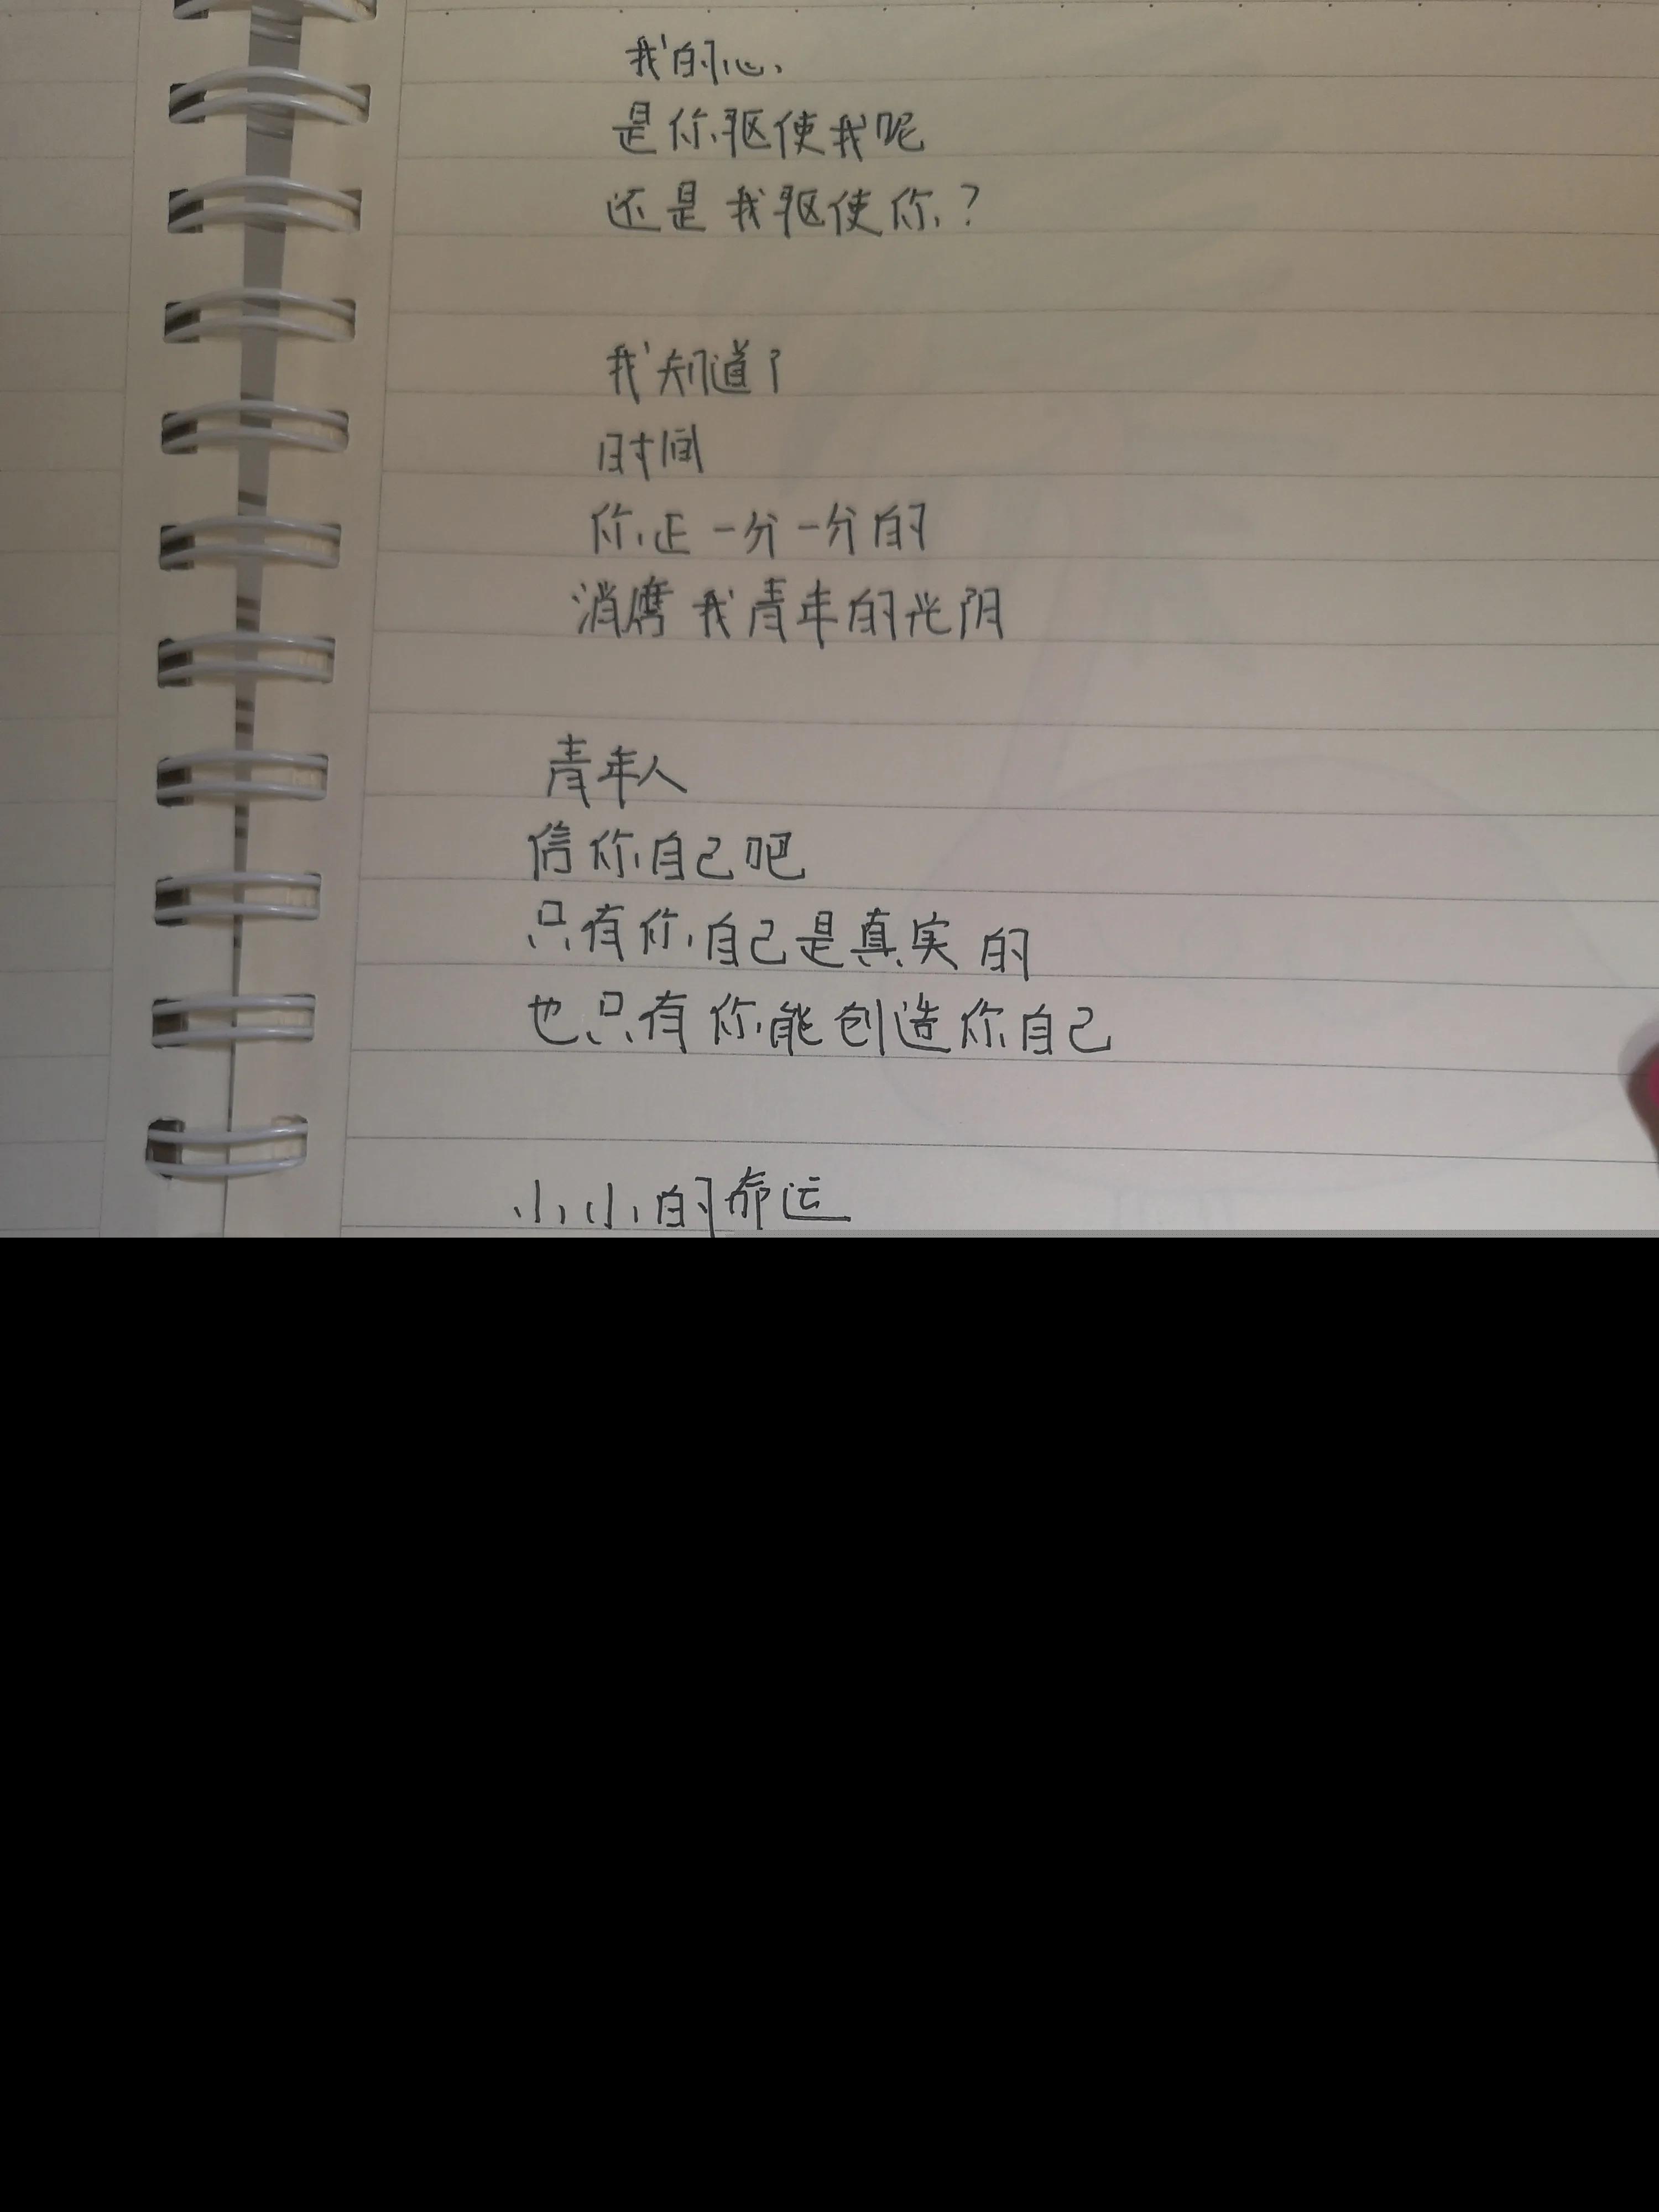 我的心
是你驱使我呢
还是我驱使你？
我知道了
时间
你正一分一分的
消磨我青年的光阴
青年人
信你自己吧
只有你自己是真实的
也只有你能创造你自己
小小的命运